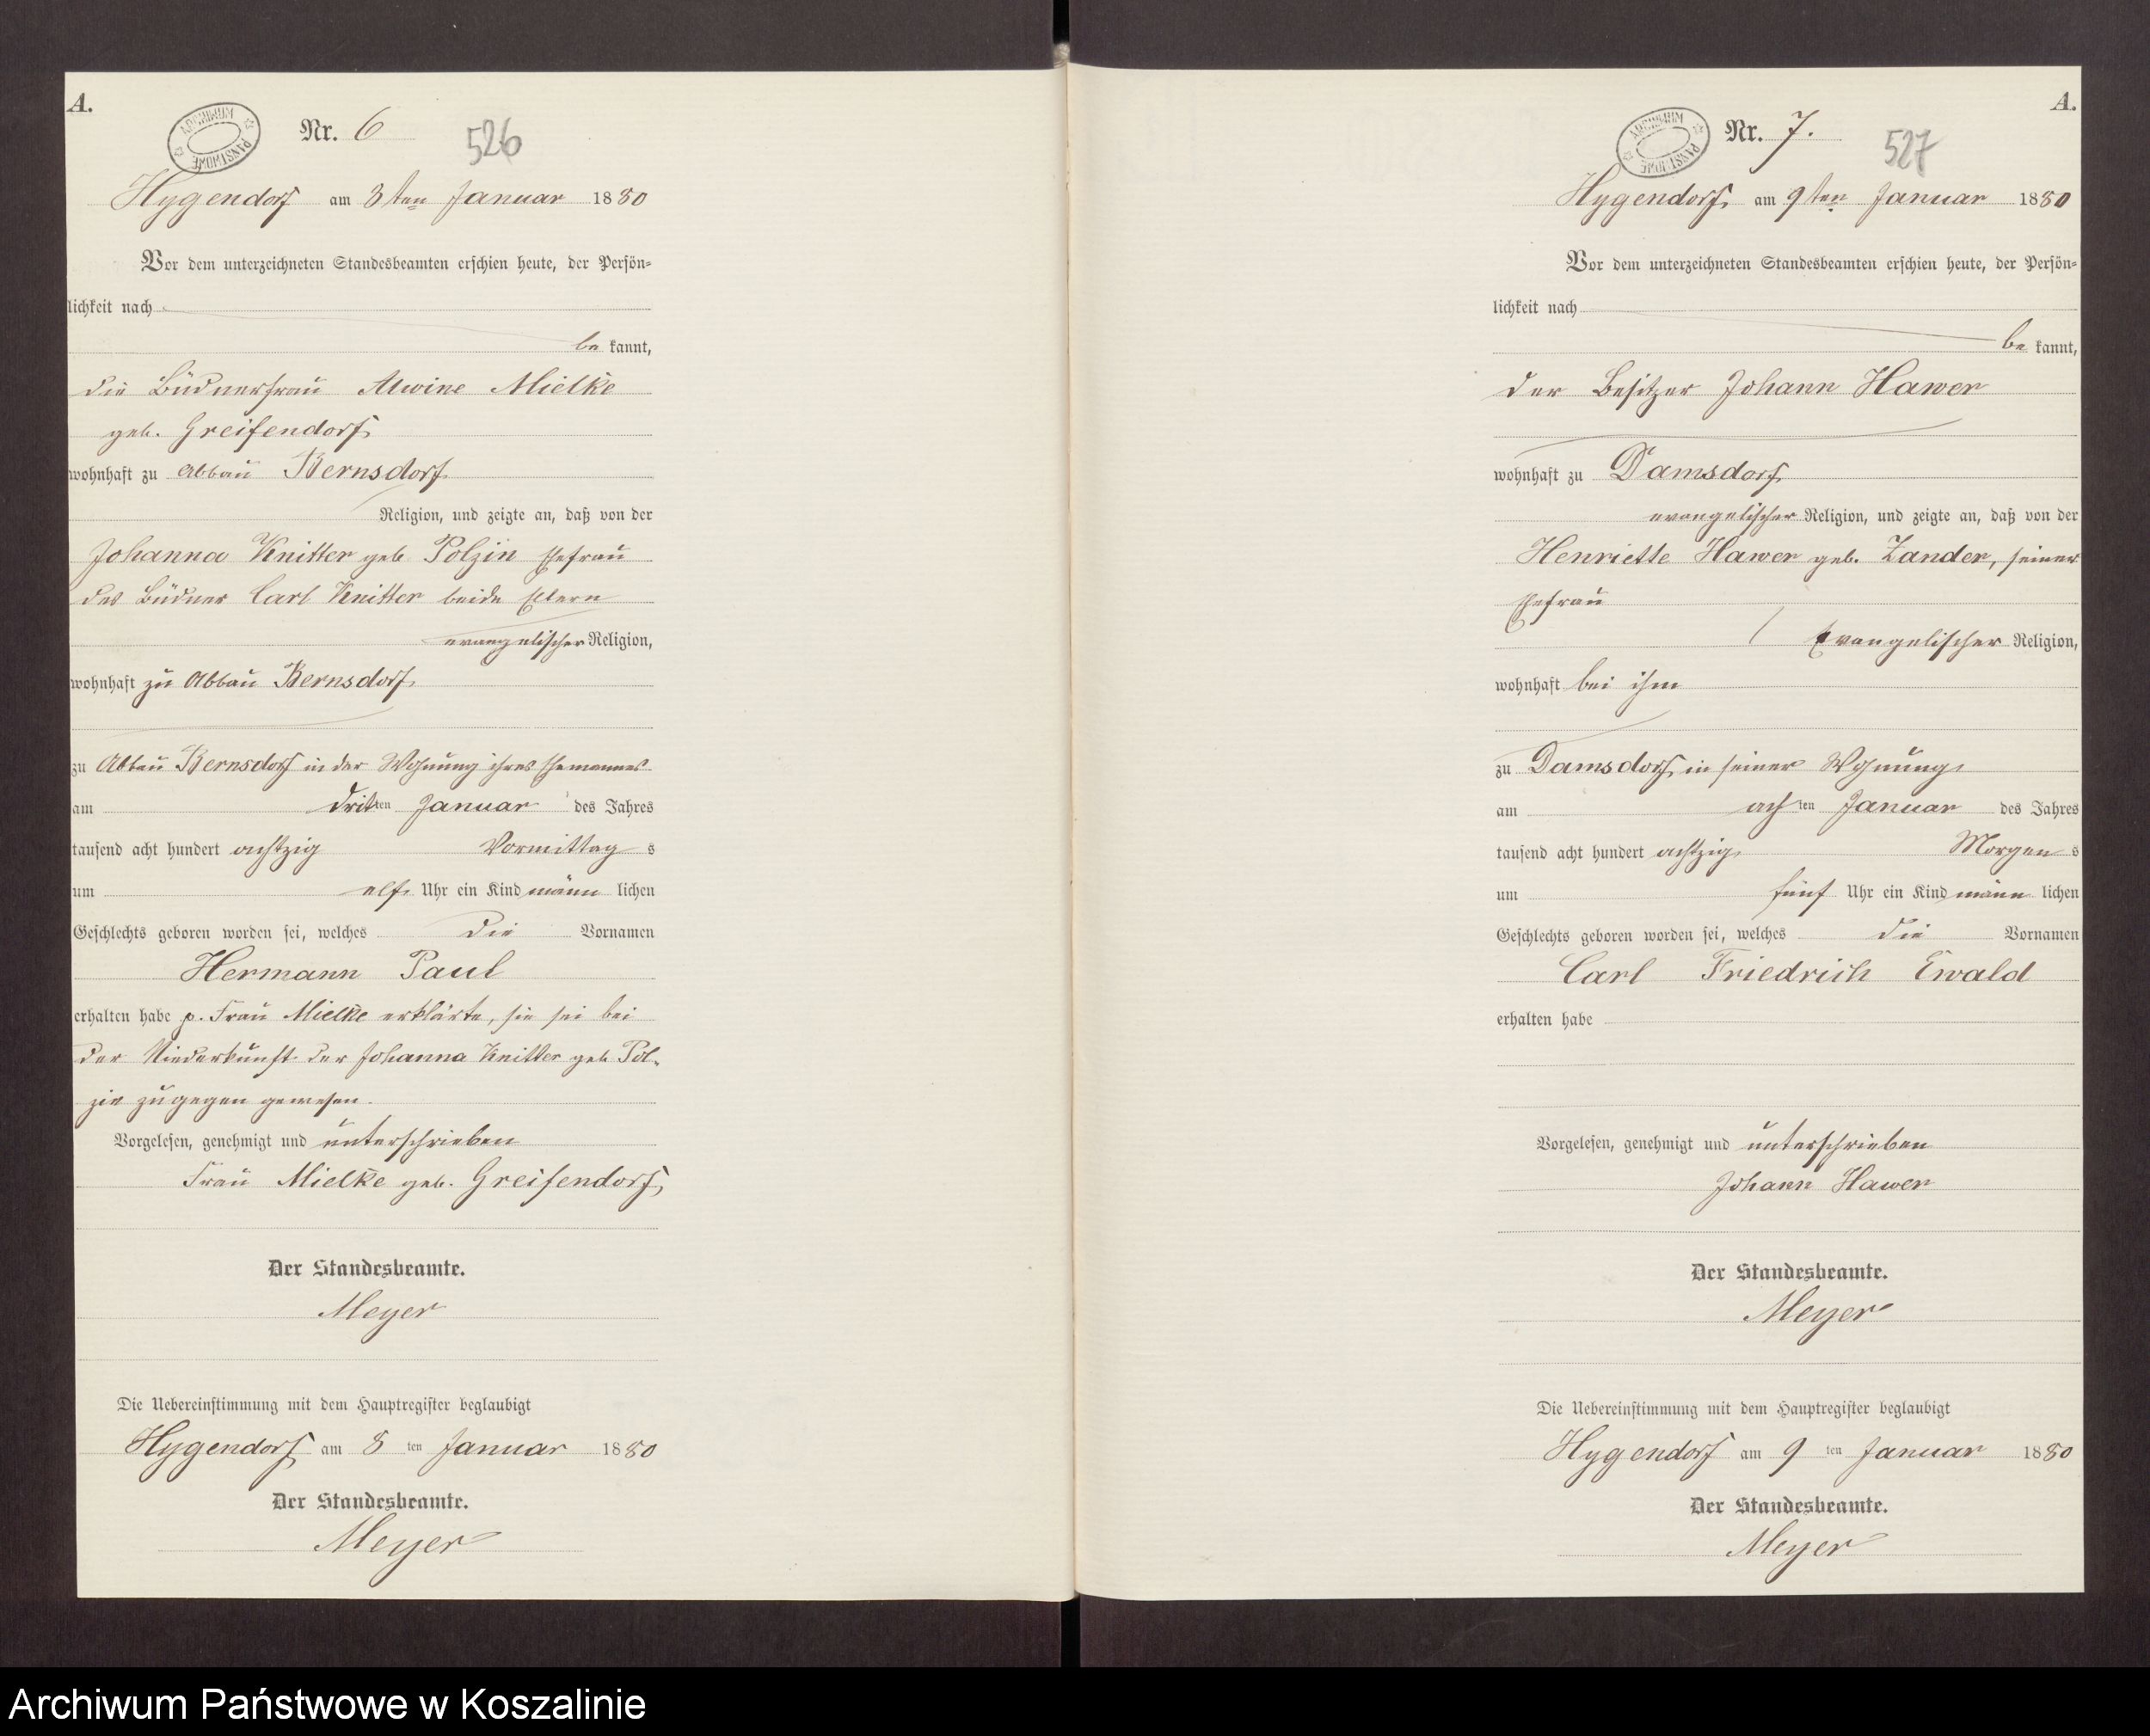 A.
ARCHIWUM PAŃSTWOWE
Nr. 6
526
Hygendorf am 8ten Januar 1880
Vor dem unterzeichneten Standesbeamten erschien heute, der Persön-
lichkeit nach
be kannt,
die Büdnerfrau Alwine Mielke
geb. Greifendorf
wohnhaft zu Abbau Bernsdorf
Religion, und zeigte an, daß von der
Johanna Knitter geb Polzin Ehefrau
des Büdner Carl Knitter beide Eltern
evangelischer Religion,
wohnhaft zu Abbau Bernsdorf
zu Abbau Bernsdorf in der Wohnung ihres Ehemannes
am dritten Januar des Jahres
tausend acht hundert achtzig Vormittag s
um elf Uhr ein Kind männ lichen
Geschlechts geboren worden sei, welches die Vornamen
Hermann Paul
erhalten habe p. Frau Mielke erklärte, sie sei bei
der Niederkunft der Johanna Knitter geb Pol-
zin zugegen gewesen.
Vorgelesen, genehmigt und unterschrieben
Frau Mielke geb. Greifendorf
Der Standesbeamte.
Meyer
Die Uebereinstimmung mit dem Hauptregister beglaubigt
Hygendorf am 8 ten Januar 1880
Der Standesbeamte.
Meyer
A.
ARCHIWUM PAŃSTWOWE
Nr. 7.
527
Hygendorf am 9ten Januar 1880
Vor dem unterzeichneten Standesbeamten erschien heute, der Persön-
lichkeit nach
be kannt,
der Besitzer Johann Hawer
wohnhaft zu Damsdorf
evangelischer Religion, und zeigte an, daß von der
Henriette Hawer geb. Zander, seiner
Ehefrau
Evangelischer Religion,
wohnhaft bei ihm
zu Damsdorf in seiner Wohnung
am ach ten Januar des Jahres
tausend acht hundert achtzig Morgen s
um fünf Uhr ein Kind männ lichen
Geschlechts geboren worden sei, welches die Vornamen
Carl Friedrich Ewald
erhalten habe
Vorgelesen, genehmigt und unterschrieben
Johann Hawer
Der Standesbeamte.
Meyer
Die Uebereinstimmung mit dem Hauptregister beglaubigt
Hygendorf am 9 ten Januar 1880
Der Standesbeamte.
Meyer
Archiwum Państwowe w Koszalinie